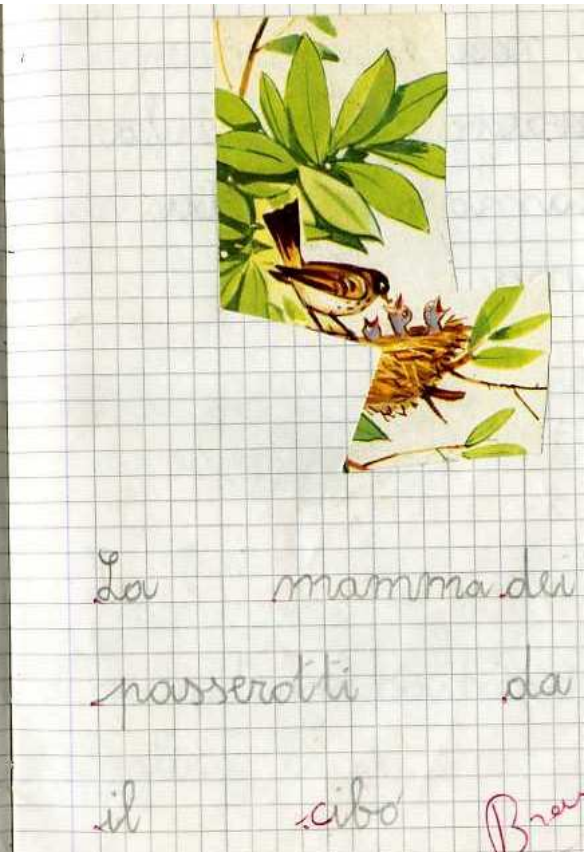 La mamma dei
passerotti da
il cibo